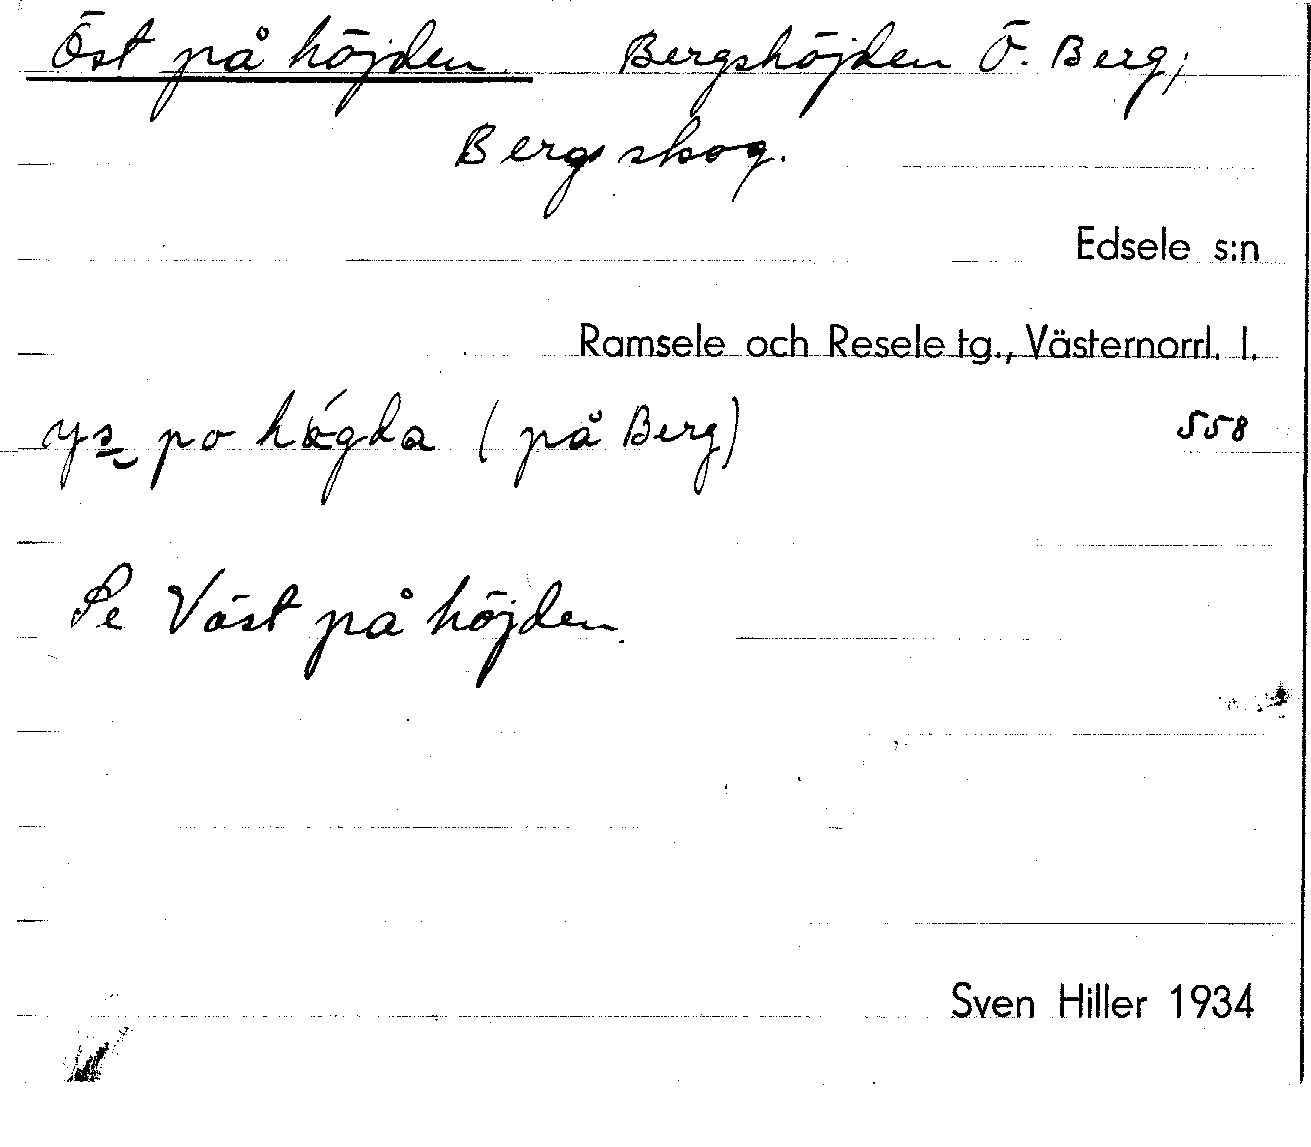 Öst på höjden Bergshöjden Ö. Berg;
Bergsskog.
Edsele s:n
Ramsele och Resele tg., Västernorrl. l.
po (på Berg) 558
Se Väst på höjden.
Sven Hiller 1934